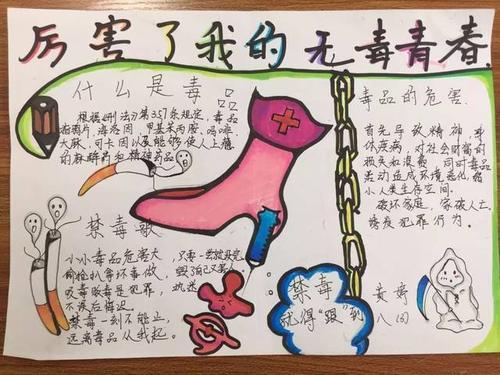 厉害了我的无毒青春
什么是毒品
根据《刑法》第357条规定，毒品
指鸦片，海洛因，甲基苯丙胺，吗啡
大麻，可卡因以及能够使人上瘾
的麻醉药和精神药品
禁毒歌
小小毒品危害大
偷抢扒拿坏事做
吸毒贩毒是犯罪，
不演后悔迟。
禁毒一刻不能止，
远离毒品从我起。
毁了自己又害人
毒品的危害
首先导致精神，身
体疾病，对社会财富的
损失和浪费，同时毒品
活动造成环境恶化，缩
小人类生存空间。
破坏家庭，家破人亡
诱发犯罪行为。
禁毒
就得"跟"到
八(3)